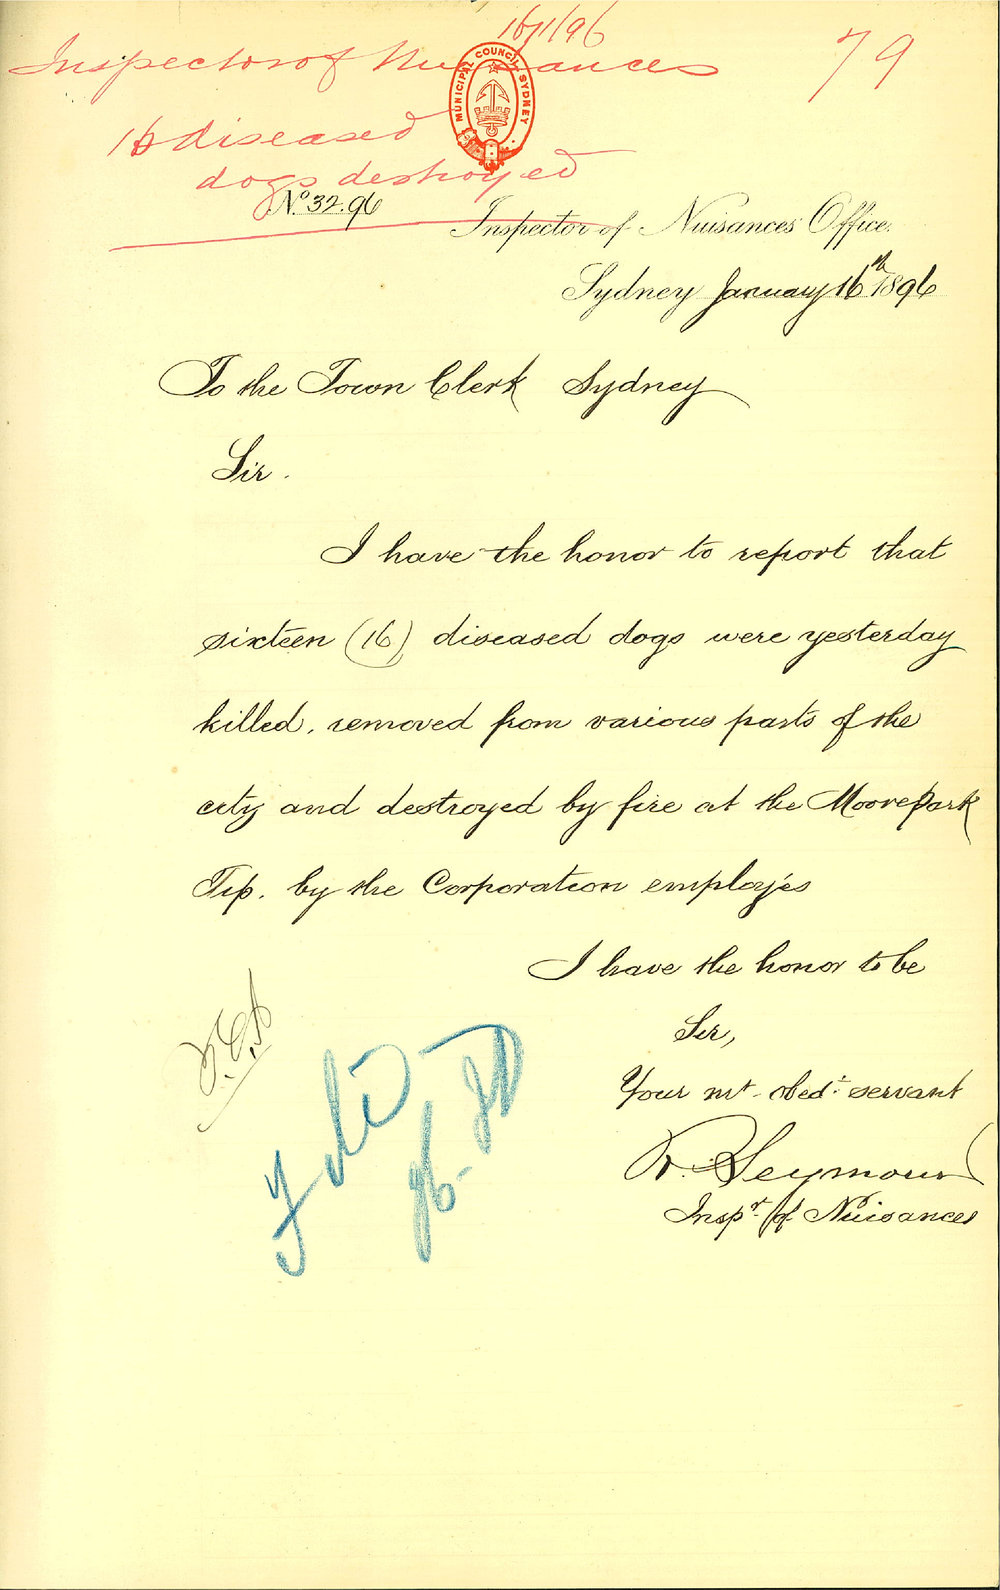 16/1/96
Inspector of Nuisances
79
MUNICIPAL COUNCIL SYDNEY
16 diseased
dogs destroyed
No. 32.96
Inspector of Nuisances Office.
Sydney January 16th 1896
To the Town Clerk Sydney
Sir.
I have the honor to report that
sixteen (16) diseased dogs were yesterday
killed, removed from various parts of the
city and destroyed by fire at the Moore Park
Tip. by the Corporation employés
I have the honor to be
Sir,
Your mt. obedt. servant
R. Seymour
Inspr. of Nuisances